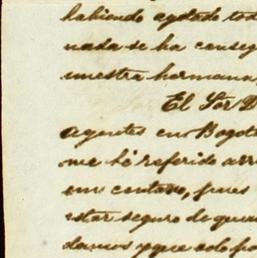 habiendo agotado tod
nada se ha conseg
nuestra hermana,
El Sor D
agentes en Bogot
me hé referido arr
un centavo, pues
estar seguro de que
damos y que solo po